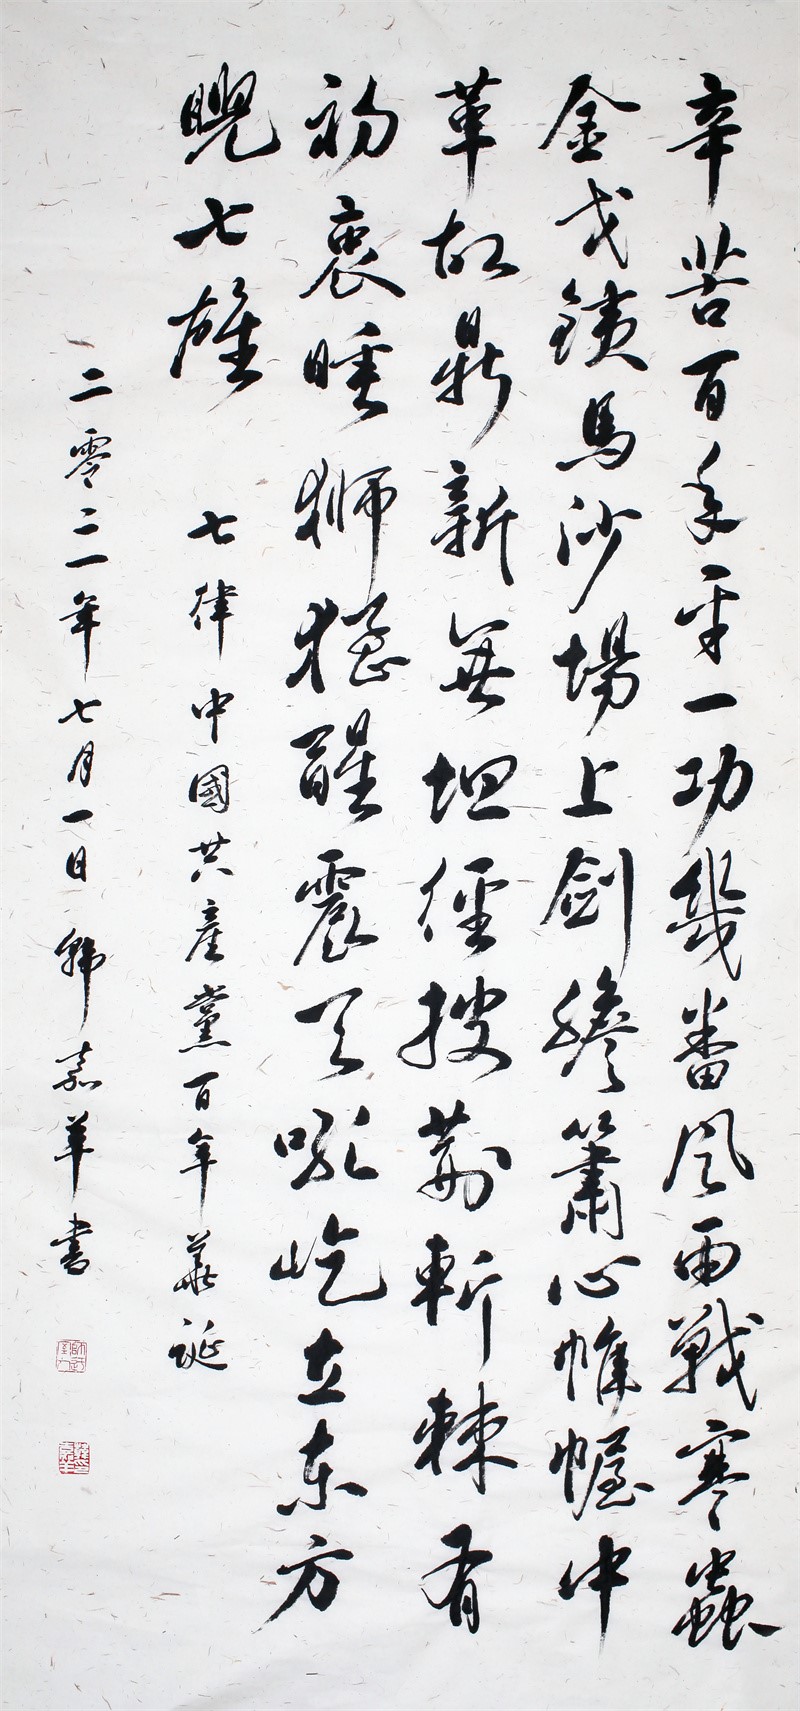 辛苦百年平一功幾番風雨戰寒蟲
金戈鐵馬沙場上劍膽簫心帷幄中
革故鼎新無坦徑披荊斬棘有
初衷睡獅猛醒震天吼屹立東方
睨七雄
七律中國共產黨百年華誕
二零二一年七月一日韓嘉羊書